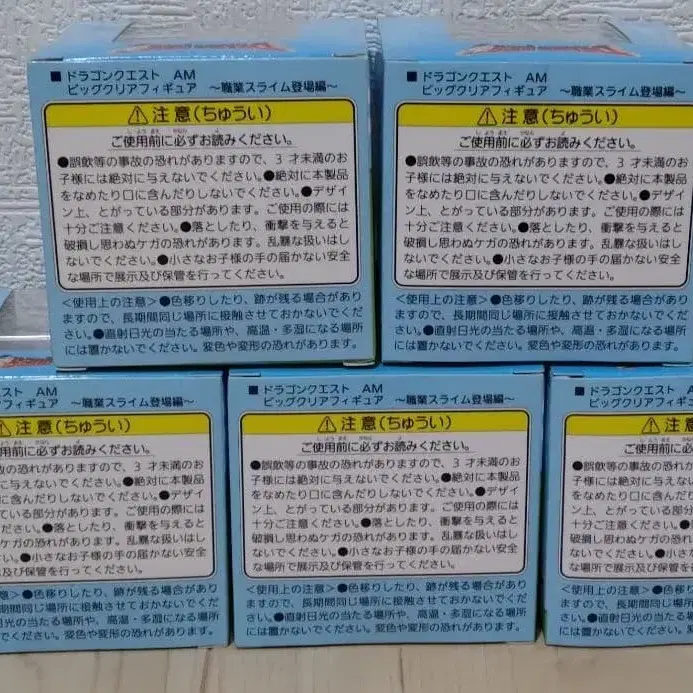 ■ ドラゴンクエスト AM
ビッグクリアフィギュア ～職業スライム登場編～
⚠注意(ちゅうい)
ご使用前に必ずお読みください。
●誤飲等の事故の恐れがありますので、3才未満のお
子様には絶対に与えないでください。●絶対に本製品
をなめたり口に含んだりしないでください。●デザイ
ン上、とがっている部分があります。ご使用の際には
十分ご注意ください。●落としたり、衝撃を与えると
破損し思わぬケガの恐れがあります。乱暴な扱いはし
ないでください。●小さなお子様の手の届かない安全
な場所で展示及び保管を行ってください。
<使用上の注意>●色移りしたり、跡が残る場合があり
ますので、長期間同じ場所に接触させておかないでくだ
さい。●直射日光の当たる場所や、高温・多湿になる場所
には置かないでください。変色や変形の恐れがあります。
■ ドラゴンクエスト AM
ビッグクリアフィギュア ～職業スライム登場編～
⚠注意(ちゅうい)
ご使用前に必ずお読みください。
●誤飲等の事故の恐れがありますので、3才未満のお
子様には絶対に与えないでください。●絶対に本製品
をなめたり口に含んだりしないでください。●デザイ
ン上、とがっている部分があります。ご使用の際には
十分ご注意ください。●落としたり、衝撃を与えると
破損し思わぬケガの恐れがあります。乱暴な扱いはし
ないでください。●小さなお子様の手の届かない安全
な場所で展示及び保管を行ってください。
<使用上の注意>●色移りしたり、跡が残る場合があり
ますので、長期間同じ場所に接触させておかないでくだ
さい。●直射日光の当たる場所や、高温・多湿になる場所
には置かないでください。変色や変形の恐れがあります。
エスト AM
アフィギュア ～職業スライム登場編～
⚠注意(ちゅうい)
使用前に必ずお読みください。
故の恐れがありますので、3才未満のお
に与えないでください。●絶対に本製品
に含んだりしないでください。●デザイ
ている部分があります。ご使用の際には
ださい。●落としたり、衝撃を与えると
ケガの恐れがあります。乱暴な扱いはし
い。●小さなお子様の手の届かない安全
示及び保管を行ってください。
意>●色移りしたり、跡が残る場合があり
長期間同じ場所に接触させておかないでくだ
光の当たる場所や、高温・多湿になる場所
でください。変色や変形の恐れがあります。
■ ドラゴンクエスト AM
ビッグクリアフィギュア ～職業スライム登場編～
⚠注意(ちゅうい)
ご使用前に必ずお読みください。
●誤飲等の事故の恐れがありますので、3才未満のお
子様には絶対に与えないでください。●絶対に本製品
をなめたり口に含んだりしないでください。●デザイ
ン上、とがっている部分があります。ご使用の際には
十分ご注意ください。●落としたり、衝撃を与えると
破損し思わぬケガの恐れがあります。乱暴な扱いはし
ないでください。●小さなお子様の手の届かない安全
な場所で展示及び保管を行ってください。
<使用上の注意>●色移りしたり、跡が残る場合があり
ますので、長期間同じ場所に接触させておかないでくだ
さい。●直射日光の当たる場所や、高温・多湿になる場所
には置かないでください。変色や変形の恐れがあります。
■ ドラゴンクエスト AM
ビッグクリアフィギュア ～職業
⚠注意
ご使用前に必ず
●誤飲等の事故の恐れがあり
子様には絶対に与えないで
をなめたり口に含んだりし
ン上、とがっている部分が
十分ご注意ください。●落
破損し思わぬケガの恐れが
ないでください。●小さな
な場所で展示及び保管を行
<使用上の注意>●色移りし
ますので、長期間同じ場所
さい。●直射日光の当たる場
には置かないでください。変